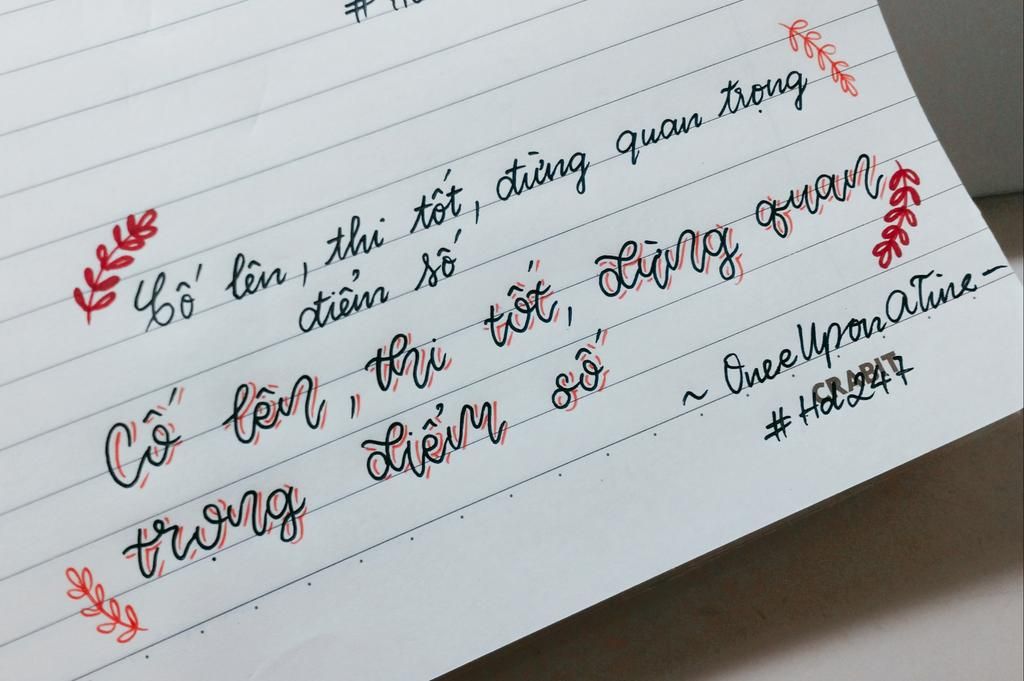 Cố lên, thi tốt, đừng quan trọng
điểm số
Cố lên, thi tốt, đừng quan
trong điểm số
~ OnceUponATime ~
CRABIT
#Hd247